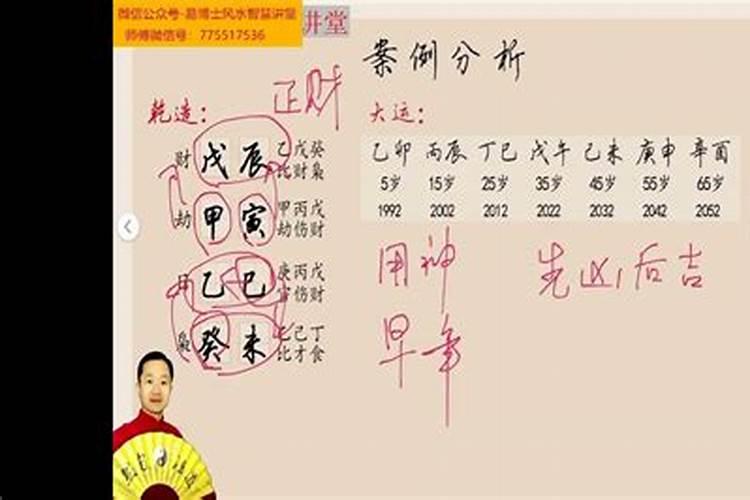 微信公众号-易博士风水智慧讲堂
师傅微信号：775517536
讲堂
案例分析
正财
乾造：
大运：
财 戊辰 乙戊癸
比财枭
劫 甲寅 甲丙戊
劫伤财
日 乙巳 庚丙戊
官伤财
枭 癸未 乙己丁
比才食
乙卯 丙辰 丁巳 戊午 己未 庚申 辛酉
5岁 15岁 25岁 35岁 45岁 55岁 65岁
1992 2002 2012 2022 2032 2042 2052
用神 先凶后吉
早年